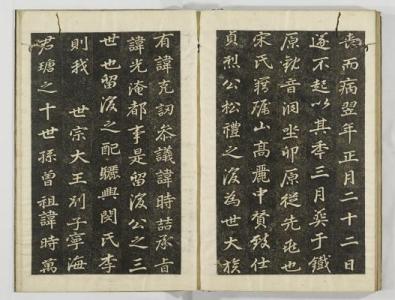 喪而病翌年正月二十二日
遂不起以其季三月葬于鐵
原音洞坐卯原從先兆也
宋氏籍礪山高麗中贊致仕
貞烈公松禮之後為世大族
有諱克訒參議諱時喆承旨
諱光淹都事是留後公之三
世也留後之配驪興閔氏李
則我 世宗大王別子寧海
君瑭之十世孫曾祖諱時萬